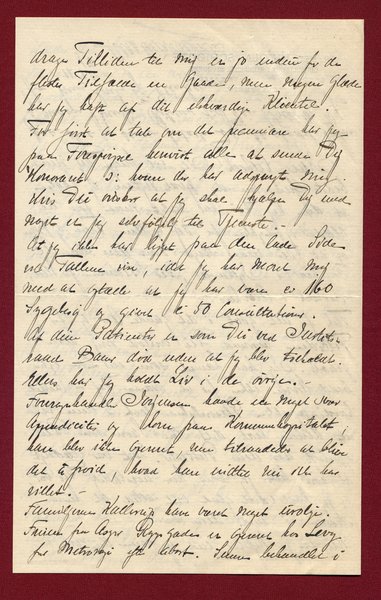 drager Tilliden til mig er jo inden for de
fleste Tilfælde en Gaade, men megen Glæde
har jeg haft af dit elskværdige Klientel.
For først at tale om det pecuniære har jeg
paa Forespørgsel henvist alle at sende Dig
Honorart ɔ: hvem der har adspurgt mig.
Hvis Du ønsker at jeg skal hjælpe Dig med
noget er jeg selvfølgelig til Tjeneste. -
At jeg ikke har ligget paa den lade Side
vil Tallene vise, idet jeg har moret mig
med at tælle at jeg har været i 160
Sygebesøg og givet c 50 Consultationer.
Af dine Patienter er som Du ved Justits-
raad død uden at jeg blev tilkaldt.
Ellers har jeg holdt Liv i de øvrige. -
Sørensen havde en meget svær
Appendicitis og kom paa Kommunehospitalet,
han blev ikke opereret, men tilraadedes at blive
det à froid, hvad han imidlertid ikke har
villet. -
Familien har været meget urolige.
Fruen fra Aage er opereret hos Levy
for efter Abort. Sønnen behandlet i